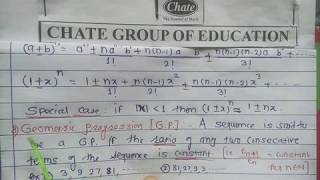 Chate
CHATE GROUP OF EDUCATION
(a±b)ⁿ = aⁿ ± na b + n(n-1)a b² ± n(n-1)(n-2)a b³ ...
1! 2! 3!
(1±x)ⁿ = 1 ± nx + n(n-1)x² ± n(n-1)(n-2)x³ ...
1! 2! 3!
Special case if |x|<1 then (1±x)ⁿ ≈ 1±nx
Geometric progression [G.P.] A sequence is said to
be a G.P. if the ratio of any two consecutive
terms of the sequence is constant = constant
3, 9, 27, 81, ② 81, 27, 9, 3